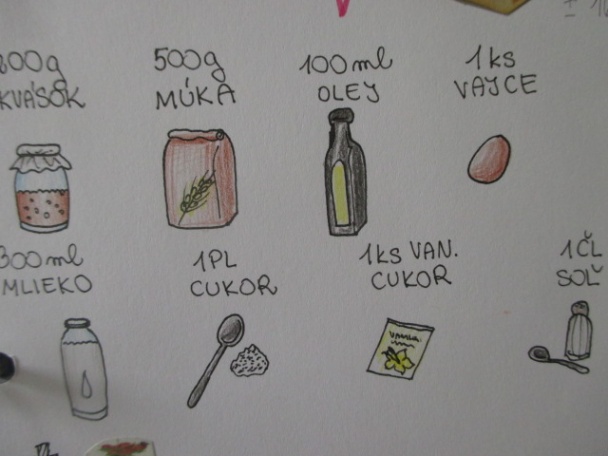 00g
KVÁSOK
500g
MÚKA
100ml
OLEJ
1ks
VAJCE
300ml
MLIEKO
1PL
CUKOR
1ks VAN.
CUKOR
1ČL
SOĽ